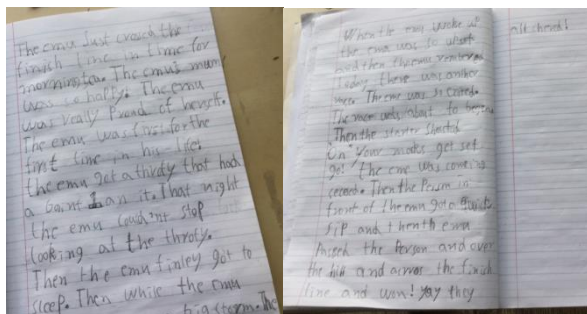 The emu Just crosed the
finish line in time for
morning tea. The emu's mum
was so happy. The emu
was really Proud of herself.
The emu was first for the
first time in his life!
the emu got a that had
a Gaint 1 on it. That night
the emu could'nt stop
looking at the throty.
Then the emu finley got to
sleep. Then while the emu
big storm. The
When the emu woke up
the emu was so
and then the emu
today there was another
race. The emu was so exited.
The race was about to
Then the starter shouted
On your marks get set
go! the emu was coming
second. Then the Person in
front of the emu got a
sip and then the emu
Passed the Person and over
the hill and across the finish
line and won! yay they
all cheerd!